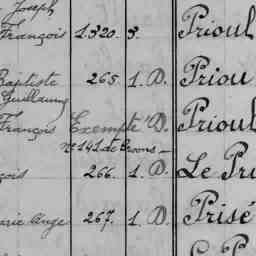 Joseph
François 1.320. 3. Prioul
Baptiste 265. 1. D. Priou
Guillaume
François Exempté D. Prioul
n° 141 de Broons –
çois 266. 1. D. Le Pri
arie Ange 267. 1. D. Prisé